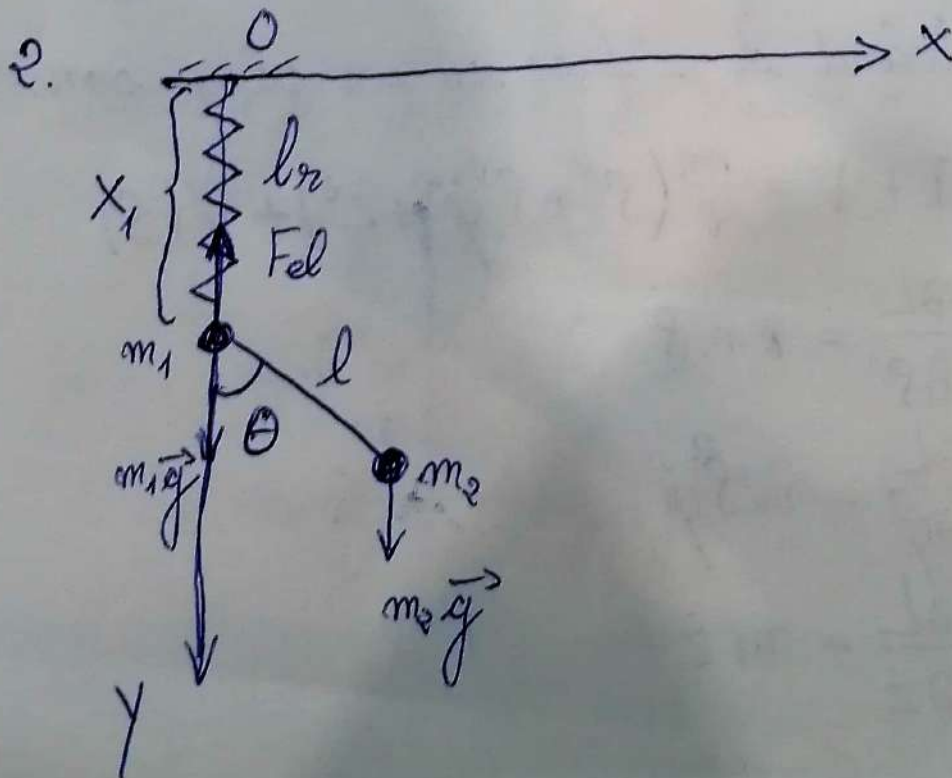 2.
O
X
X₁
lr
Fel
m₁
l
θ
m₁g⃗
m₂
m₂g⃗
Y